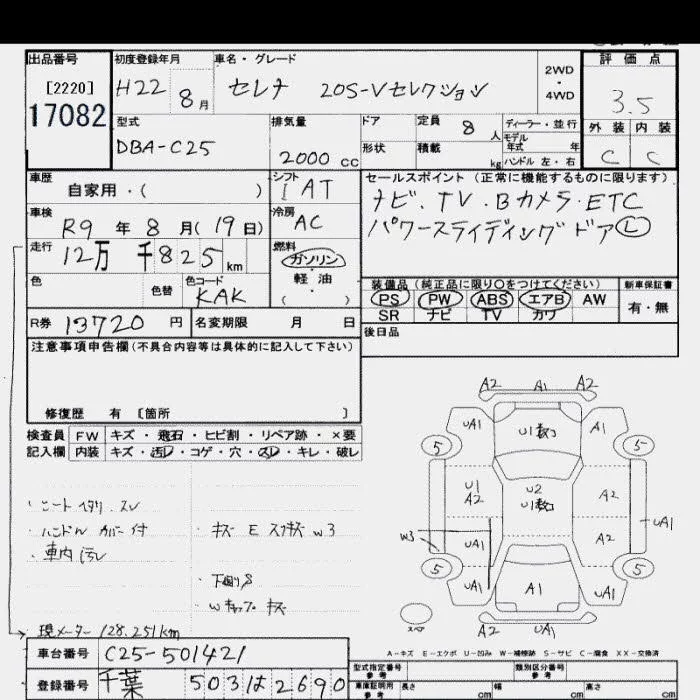 出品番号 初度登録年月 車名・グレード 評価点
[2220] H22 8月 セレナ 20S-Vセレクション 2WD・4WD 3.5
17082
型式 排気量 ドア 定員 8人 ディーラー・並行 外装 内装
DBA-C25 2000cc 形状 積載 kg モデル年式 年 C C
ハンドル 左・右
車歴 シフト セールスポイント(正常に機能するものに限ります)
自家用・( ) IAT ナビ、TV・Bカメラ・ETC
車検 冷房 パワースライディングドアⓁ
R9年8月(19日) AC
走行 燃料
12万千825km ガソリン
軽油
( )
色 色替 色コード 装備品(純正品に限り〇をつけてください) 新車保証書
KAK PS PW ABS エアB AW 有・無
SR ナビ TV カワ
R券 13720円 名変期限 月 日 後日品
注意事項申告欄(不具合内容等は具体的に記入して下さい)
修復歴 有 [箇所 ]
検査員 FW キズ・飛石・ヒビ割・リペア跡・×要
記入欄 内装 キズ・汚レ・コゲ・穴・スレ・キレ・破レ
A2 A1 A2
UA1 A1
5 5
U1
A2 U2 A2
UA1
W3 UA1 A2
5 5
UA1 A1 UA1
A2 UA1
・ハンドルカバー付
・車内汚レ W3
・下廻りS
現メーター 128.251km
A-キズ E-エクボ U-凹み W-補修跡 S-サビ C-腐食 XX-交換済
車台番号 C25-501421 型式指定番号 参考 類別区分番号 参考
登録番号 千葉 503は2690 車庫証明用 参考 長さ cm 幅 cm 高さ cm